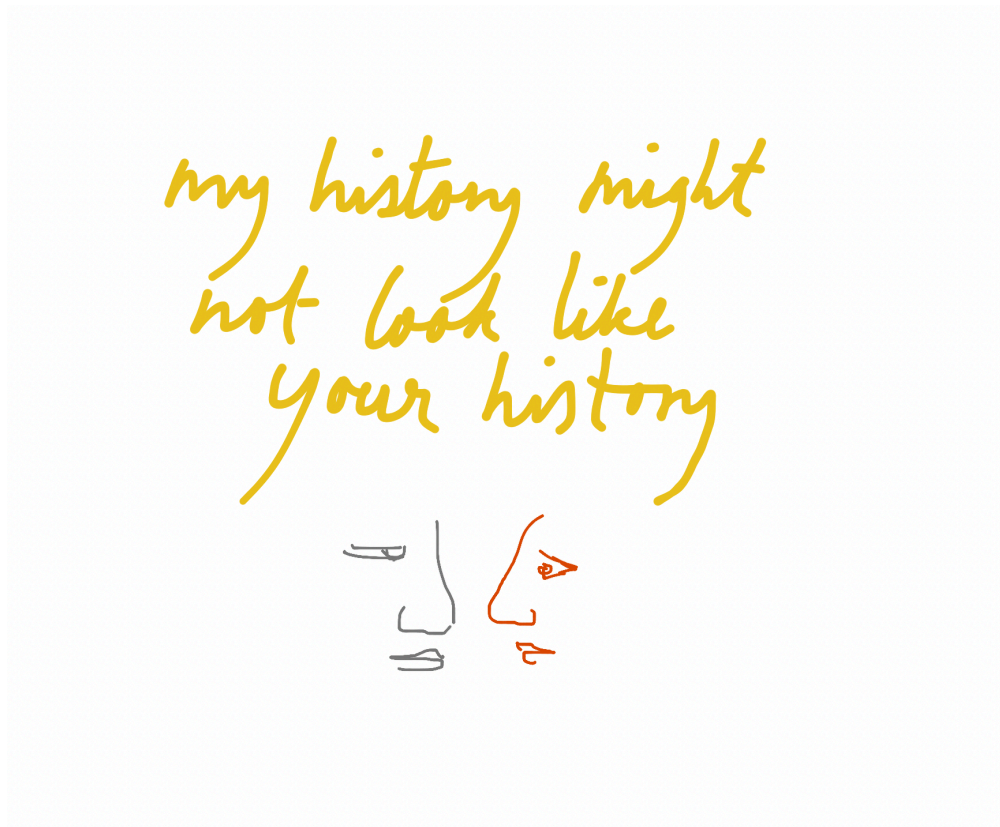 my history might
not look like
your history